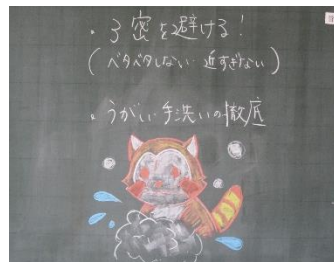 ・3密を避ける!
(ベタベタしない・近すぎない)
・うがい・手洗いの徹底